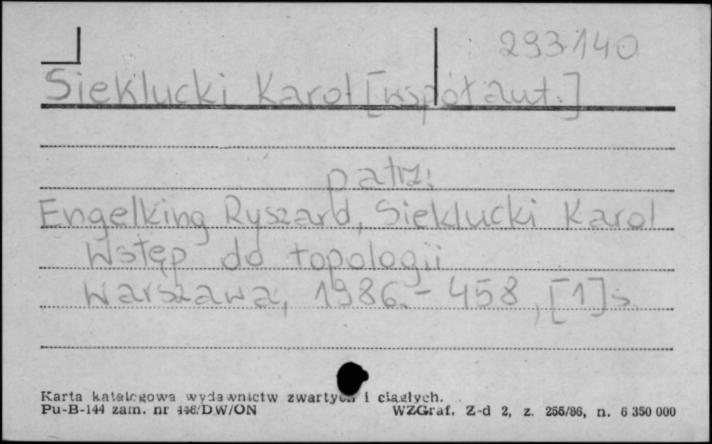 293140
Sieklucki Karol [współaut.]
patrz:
Engelking Ryszard, Sieklucki Karol
Wstęp do topologii
Warszawa, 1986.- 458, [1] s.
Karta katalogowa wydawnictw zwartych i ciągłych.
Pu-B-144 zam. nr 446/DW/ON WZGraf. Z-d 2, z. 255/86, n. 6 350 000